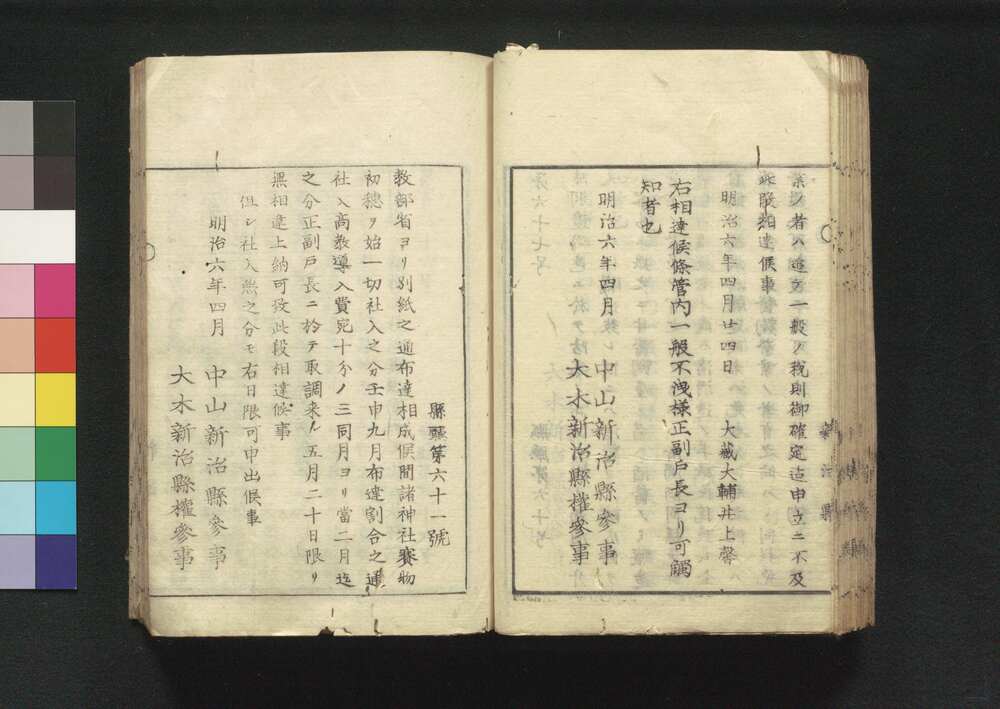 業ノ者ハ追テ一般ノ税則御確定迄申立ニ不及
此段相達候事
明治六年四月廿四日　大蔵大輔井上馨
右相達候條管内一般不洩様正副戸長ヨリ可觸
知者也
明治六年四月　中山新治縣參事
大木新治縣權參事
縣廳第六十一號
教部省ヨリ別紙之通布達相成候間諸神社賽物
初穂ヲ始一切社入之分壬申九月布達割合之通
社入高教導入費宛十分ノ三同月ヨリ當二月迄
之分正副戸長ニ於テ取調来ル五月二十日限リ
無相違上納可致此段相達候事
但シ社入無之分モ右日限可申出候事
明治六年四月　中山新治縣參事
大木新治縣權參事